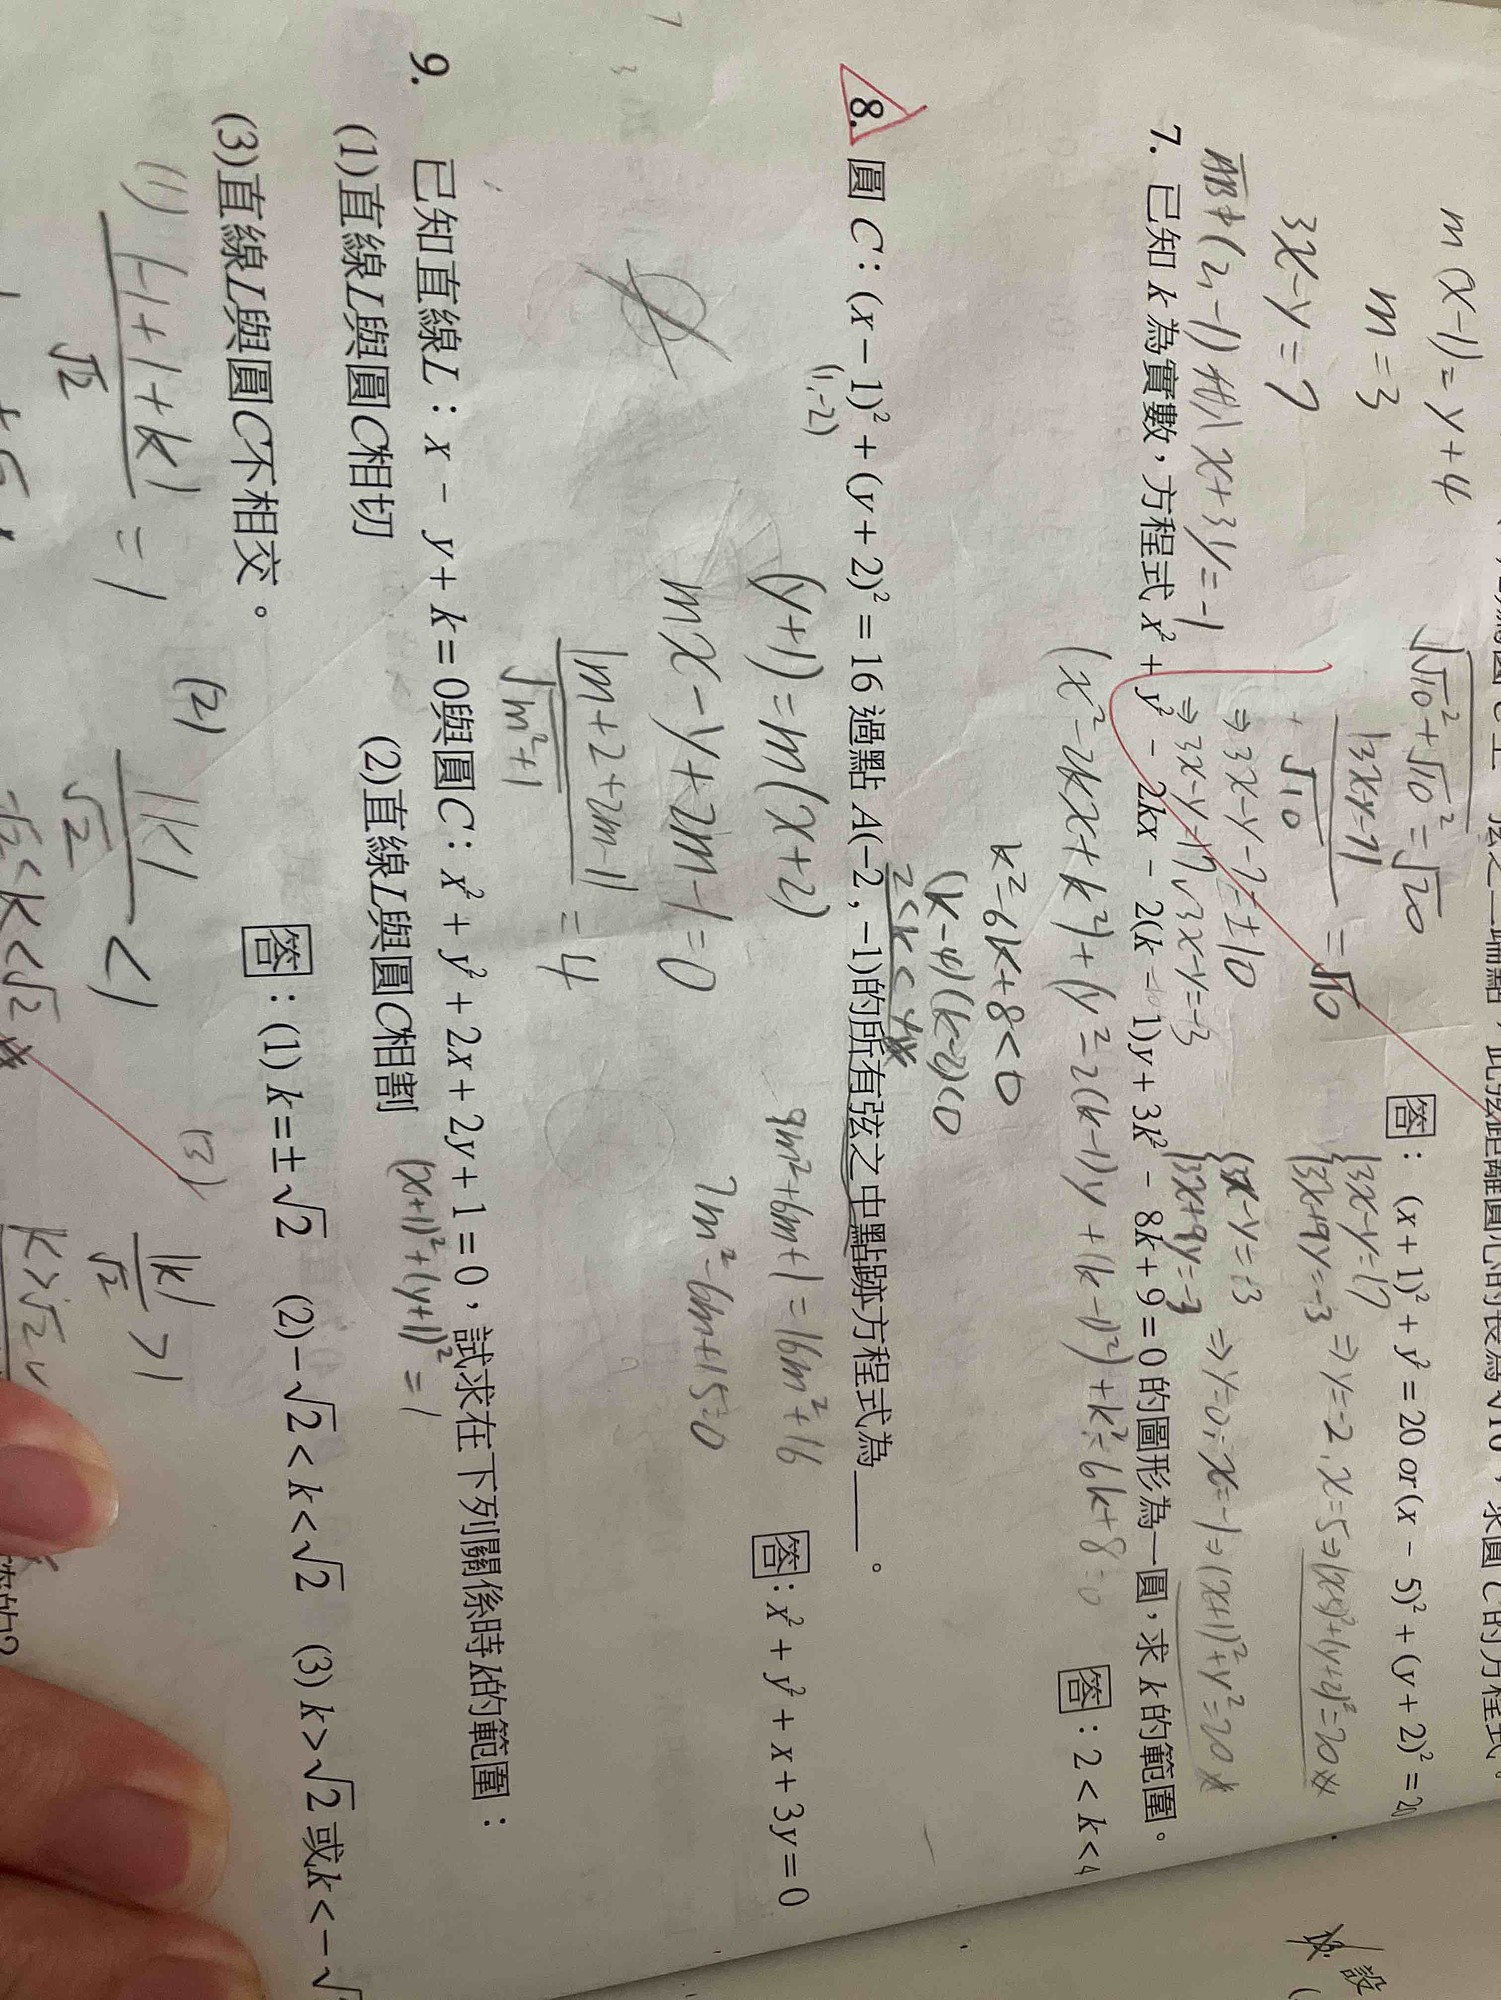 m(x-1)=y+4
m=3
3x-y=7
√(√10²+√10²)=√20
|3x-y-7|/√10=√10
⇒3x-y-7=±10
⇒3x-y=17∨3x-y=-3
答：(x + 1)² + y² = 20 or (x - 5)² + (y + 2)² = 20
{3x-y=17
{3x+9y=-3 ⇒y=-2,x=5⇒(x-5)²+(y+2)²=20
{3x-y=-3
{3x+9y=-3 ⇒y=0,x=-1⇒(x+1)²+y²=20
7. 已知 k 為實數，方程式 x² + y² - 2kx - 2(k - 1)y + 3k² - 8k + 9 = 0 的圖形為一圓，求 k 的範圍。
(x²-2kx+k²)+(y²-2(k-1)y+(k-1)²)+k²-6k+8=0
答：2 < k < 4
k²-6k+8<0
(k-4)(k-2)<0
2<k<4
8. 圓 C：(x - 1)² + (y + 2)² = 16 過點 A(-2 , -1)的所有弦之中點軌跡方程式為＿＿。
(1,-2)
答：x² + y² + x + 3y = 0
(y+1)=m(x+2)
mx-y+2m-1=0
|m+2+2m-1|/√(m²+1)=4
9m²+6m+1=16m²+16
7m²-6m+15=0
9. 已知直線L：x - y + k = 0與圓C：x² + y² + 2x + 2y + 1 = 0，試求在下列關係時k的範圍：
(x+1)²+(y+1)²=1
(1)直線L與圓C相切 (2)直線L與圓C相割
(3)直線L與圓C不相交。
答：(1) k = ± √2 (2) - √2 < k < √2 (3) k > √2 或 k < - √
(1) |-1+1+k|/√2=1
(2) |k|/√2<1
-√2<k<√2
(3) |k|/√2>1
k>√2
設